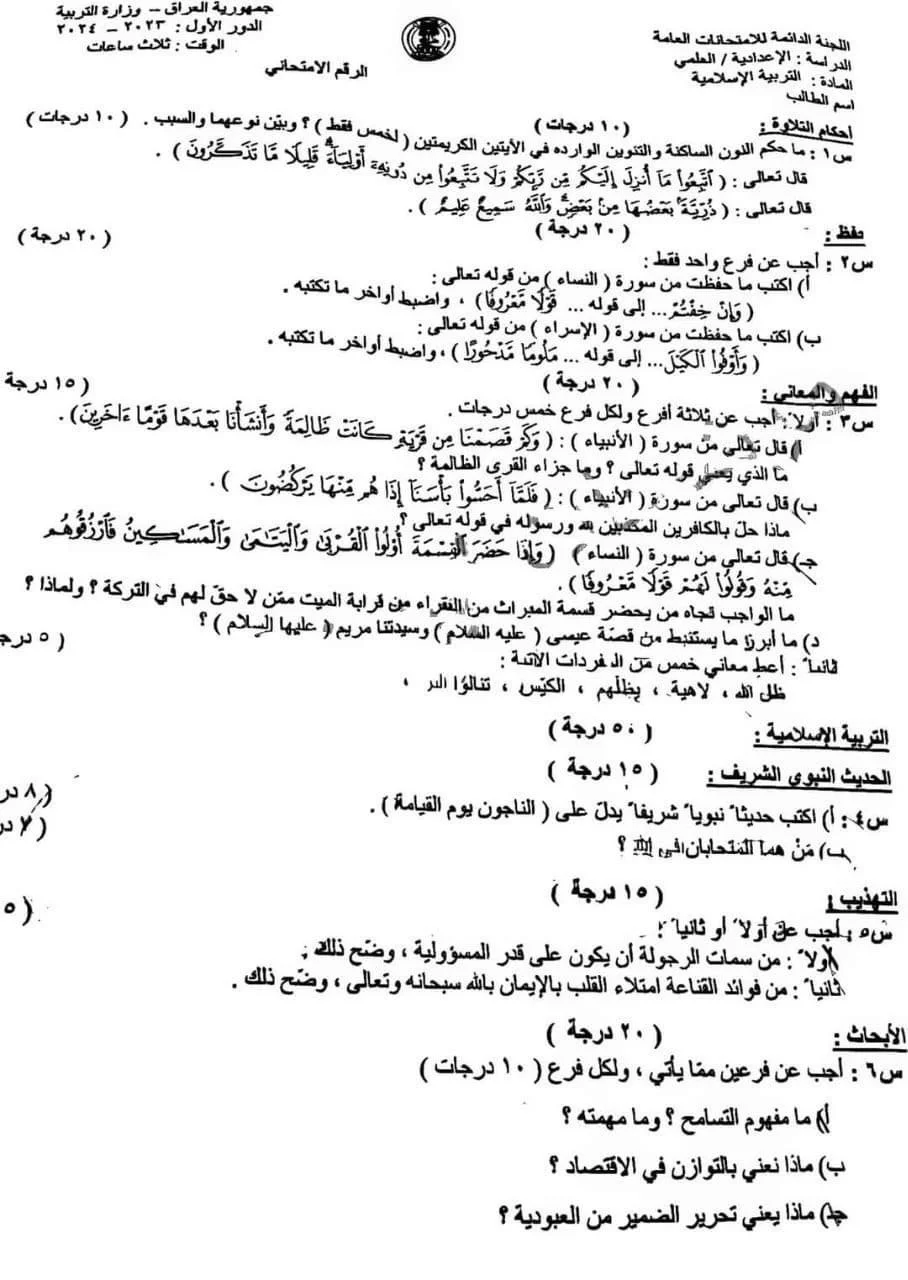 جمهورية العراق – وزارة التربية
الدور الأول : ٢٠٢٣ – ٢٠٢٤
الوقت : ثلاث ساعات
الرقم الامتحاني
اللجنة الدائمة للامتحانات العامة
الدراسة : الإعدادية / العلمي
المادة : التربية الإسلامية
اسم الطالب
أحكام التلاوة : ( ١٠ درجات )
س١ : ما حكم النون الساكنة والتنوين الوارده في الآيتين الكريمتين ( لخمس فقط ) ؟ وبيّن نوعهما والسبب . ( ١٠ درجات )
قال تعالى : ( ٱتَّبِعُوا۟ مَآ أُنزِلَ إِلَيْكُم مِّن رَّبِّكُمْ وَلَا تَتَّبِعُوا۟ مِن دُونِهِۦٓ أَوْلِيَآءَ ۗ قَلِيلًا مَّا تَذَكَّرُونَ ) .
قال تعالى : ( ذُرِّيَّةًۢ بَعْضُهَا مِنۢ بَعْضٍ ۗ وَٱللَّهُ سَمِيعٌ عَلِيمٌ ) .
حفظ : ( ٢٠ درجة ) ( ٢٠ درجة )
س٢ : أجب عن فرع واحد فقط :
أ) اكتب ما حفظت من سورة ( النساء ) من قوله تعالى :
( وَإِنْ خِفْتُمْ ... إلى قوله ... قَوْلًا مَّعْرُوفًا ) ، واضبط أواخر ما تكتبه .
ب) اكتب ما حفظت من سورة ( الإسراء ) من قوله تعالى :
( وَأَوْفُوا۟ ٱلْكَيْلَ... إلى قوله ... مَلُومًا مَّدْحُورًا ) ، واضبط أواخر ما تكتبه .
الفهم والمعاني : ( ٢٠ درجة ) ( ١٥ درجة
س٣ : أولاً : أجب عن ثلاثة أفرع ولكل فرع خمس درجات .
أ) قال تعالى من سورة ( الأنبياء ) : ( وَكَمْ قَصَمْنَا مِن قَرْيَةٍ كَانَتْ ظَالِمَةً وَأَنشَأْنَا بَعْدَهَا قَوْمًا ءَاخَرِينَ ) .
ما الذي يعني قوله تعالى ؟ وما جزاء القرى الظالمة ؟
ب) قال تعالى من سورة ( الأنبياء ) : ( فَلَمَّآ أَحَسُّوا۟ بَأْسَنَآ إِذَا هُم مِّنْهَا يَرْكُضُونَ ) .
ماذا حلّ بالكافرين المكذبين لله ورسوله في قوله تعالى ؟
جـ) قال تعالى من سورة ( النساء ) ( وَإِذَا حَضَرَ ٱلْقِسْمَةَ أُو۟لُوا۟ ٱلْقُرْبَىٰ وَٱلْيَتَـٰمَىٰ وَٱلْمَسَـٰكِينُ فَٱرْزُقُوهُم
مِّنْهُ وَقُولُوا۟ لَهُمْ قَوْلًا مَّعْرُوفًا ) .
ما الواجب تجاه من يحضر قسمة الميراث من الفقراء من قرابة الميت ممّن لا حقّ لهم في التركة ؟ ولماذا ؟
د) ما أبرز ما يستنبط من قصة عيسى ( عليه السلام ) وسيدتنا مريم ( عليها السلام ) ؟
ثانياً : أعطِ معاني خمس من المفردات الآتية : ( ٥ درجـ
ظل الله ، لاهية ، يظلّهم ، الكيّس ، تنالوا البر ،
التربية الإسلامية : ( ٥٠ درجة )
الحديث النبوي الشريف : ( ١٥ درجة )
س٤ : أ) اكتب حديثاً نبوياً شريفاً يدلّ على ( الناجون يوم القيامة ) . ( ٨ در
ب) مَنْ هما المتحابان في الله ؟ ( ٧ در
التهذيب : ( ١٥ درجة )
س٥ : أجب عن أولاً أو ثانياً : ( ٥
أولاً : من سمات الرجولة أن يكون على قدر المسؤولية ، وضّح ذلك .
ثانياً : من فوائد القناعة امتلاء القلب بالإيمان بالله سبحانه وتعالى ، وضّح ذلك .
الأبحاث : ( ٢٠ درجة )
س٦ : أجب عن فرعين ممّا يأتي ، ولكل فرع ( ١٠ درجات )
أ) ما مفهوم التسامح ؟ وما مهمته ؟
ب) ماذا نعني بالتوازن في الاقتصاد ؟
جـ) ماذا يعني تحرير الضمير من العبودية ؟